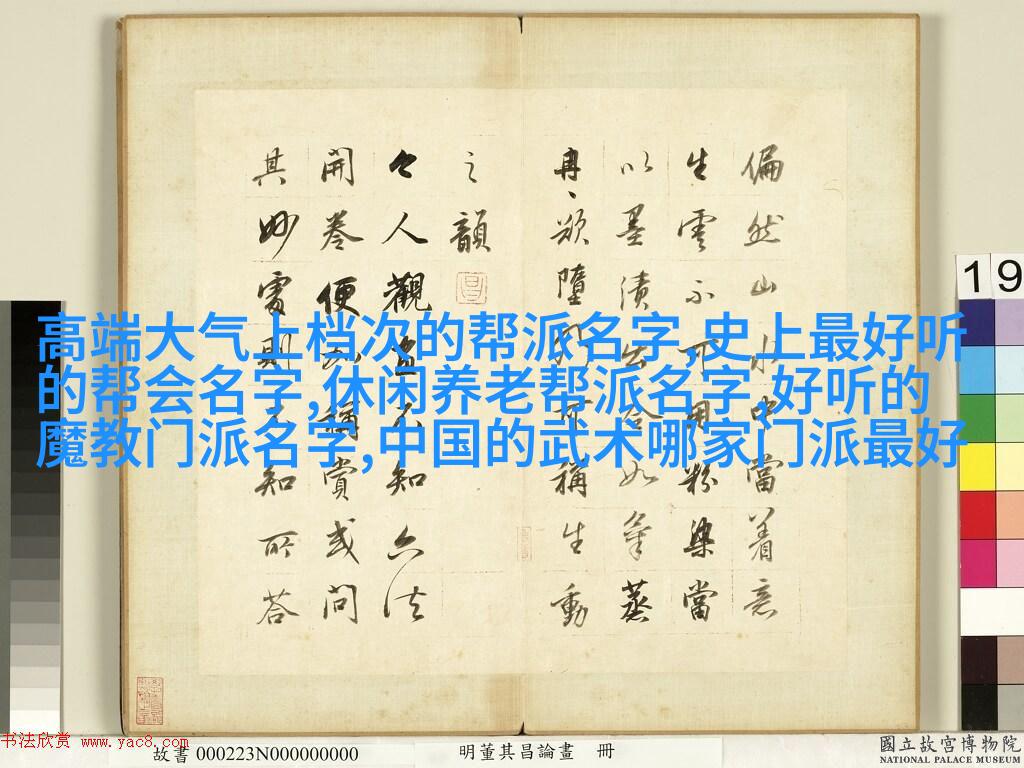 高端大气上档次的帮派名字,史上最好听
的帮会名字,休闲养老帮派名字,好听的
魔教门派名字,中国的武术哪家门派最好
偏然山水中當着意
生雲不可用粉染當
以墨漬出令如氣蒸
冉〻欲墮乃可稱生動
之韻
今人觀畫不知六法
開卷便加稱賞或問
其妙處則不知所答
19
书法欣赏 www.yac8.com
故書 000223N000000000
明董其昌論畫 冊
國立故宮博物院
NATIONAL PALACE MUSEUM